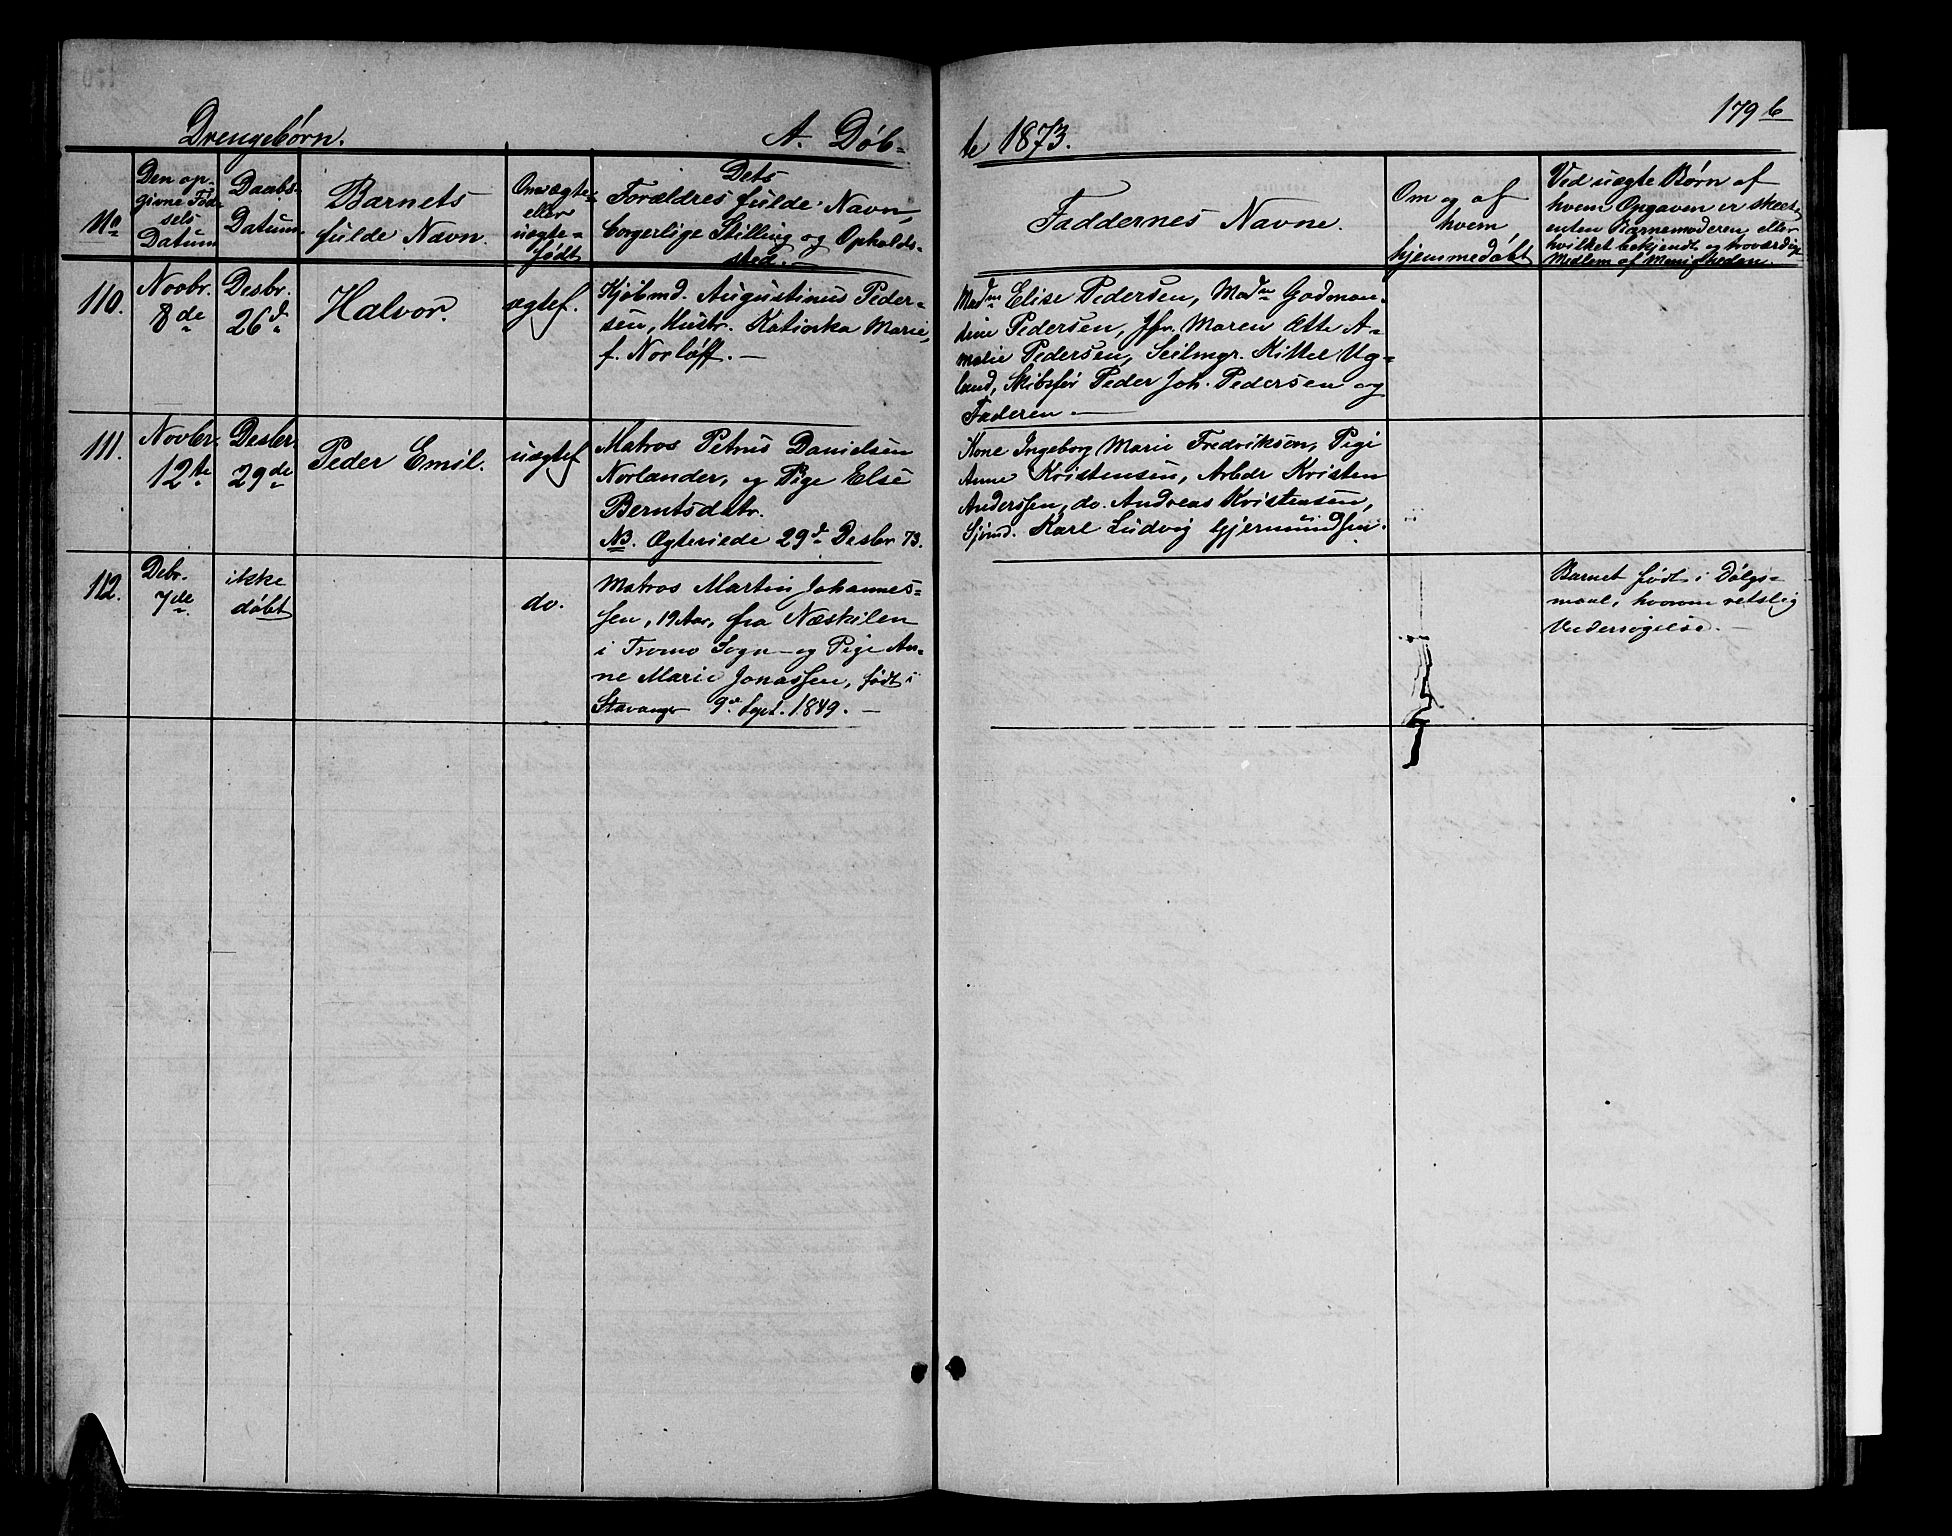 179 b
Drengebørn. A. Døb-
te 1873.
No
Den op-
givne Fød-
sels
Datum
Daabs-
Datum.
Barnets
fulde Navn.
Om ægte-
eller
uægte-
født
Dets
Forældres fulde Navn,
borgerlige Stilling og Opholds-
sted.
Faddernes Navne.
Om og af
hvem
hjemmedøbt
Ved uægte Børn af
hvem Opgaven er skeet
enten Barnemoderen eller
hvilket bekjendt og troværdigt
Medlem af Menigheden.
110.
Novbr.
8de
Desbr.
26d.
Halvor.
ægtef.
Kjøbmd. Augustinus Peder-
sen, Hustr. Katinka Marie,
f. Norløff. —
Madm Elise Pedersen, Madm Gadman-
dine Pedersen, Jfr. Maren Ætte A-
malie Pedersen, Seilmgr. Kittel Ug-
land, Skibsfør Peder Joh. Pedersen og
Faderen. —
111.
Novbr.
12te
Desbr.
29de
Peder Emil.
uægtef
Matros Petrus Danielsen
Norlander, og Pige Else
Berntsdatr.
NB. Ægteviede 29d. Desbr 73.
Kone Ingeborg Marie Fredriksen, Pige
Anne Kristensen, Arbdr Kristen
Anderssen, do. Andreas Kristensen,
Sjømd. Karl Ludvig Gjermundsen.
112.
Debr.
7de
ikke
døbt
do.
Matros Martin Johannes-
sen, 19 Aar, fra Næskilen
i Tromø Sogn – og Pige An-
ne Marie Jonassen, født i
Stavanger 9d. Sept. 1849. —
Barnet født i Dølgs-
maal, hvorom retslig
Undersøgelse. —